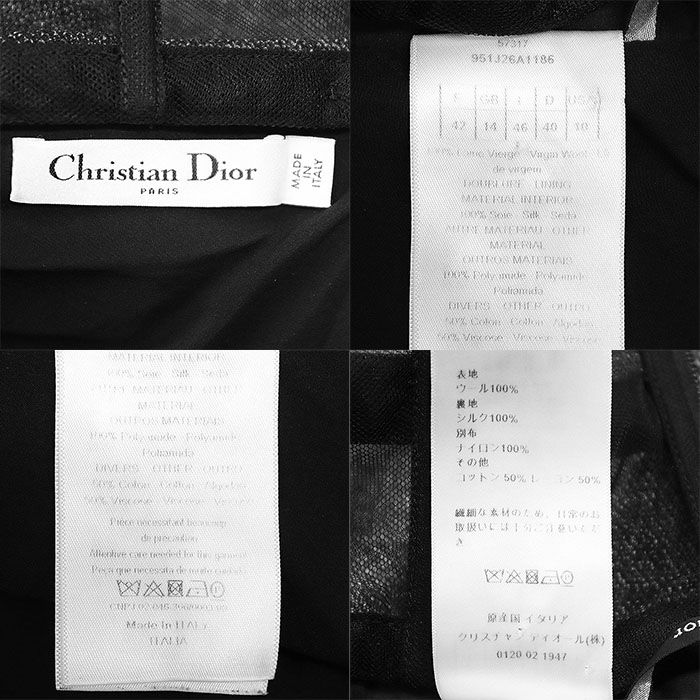 Christian Dior
PARIS
MADE
IN
ITALY
57317
951J26A1186
F GB I D USA
42 14 46 40 10
100% Laine Vierge - Virgin Wool - Lã
de virgem
DOUBLURE - LINING
MATERIAL INTERIOR
100% Soie - Silk - Seda
AUTRE MATERIAU - OTHER
MATERIAL
OUTROS MATERIAIS
100% Polyamide - Polyamide
Poliamida
DIVERS - OTHER - OUTRO
50% Coton - Cotton - Algodao
50% Viscose - Viscose - Viscose
MATERIAL INTERIOR
100% Soie - Silk - Seda
AUTRE MATERIAU - OTHER
MATERIAL
OUTROS MATERIAIS
100% Polyamide - Polyamide
Poliamida
DIVERS - OTHER - OUTRO
50% Coton - Cotton - Algodao
50% Viscose - Viscose - Viscose
Pièce necessitant beaucoup
de précaution
Attentive care needed for this garment
Peça que necessita de muito cuidado
MADE IN ITALY
ITALIA
表地
ウール100%
裏地
シルク100%
別布
ナイロン100%
その他
コットン 50% レーヨン 50%
繊細な素材のため、日常のお
取扱いには十分ご注意いただ
き
原産国 イタリア
クリスチャン ディオール(株)
0120 02 1947